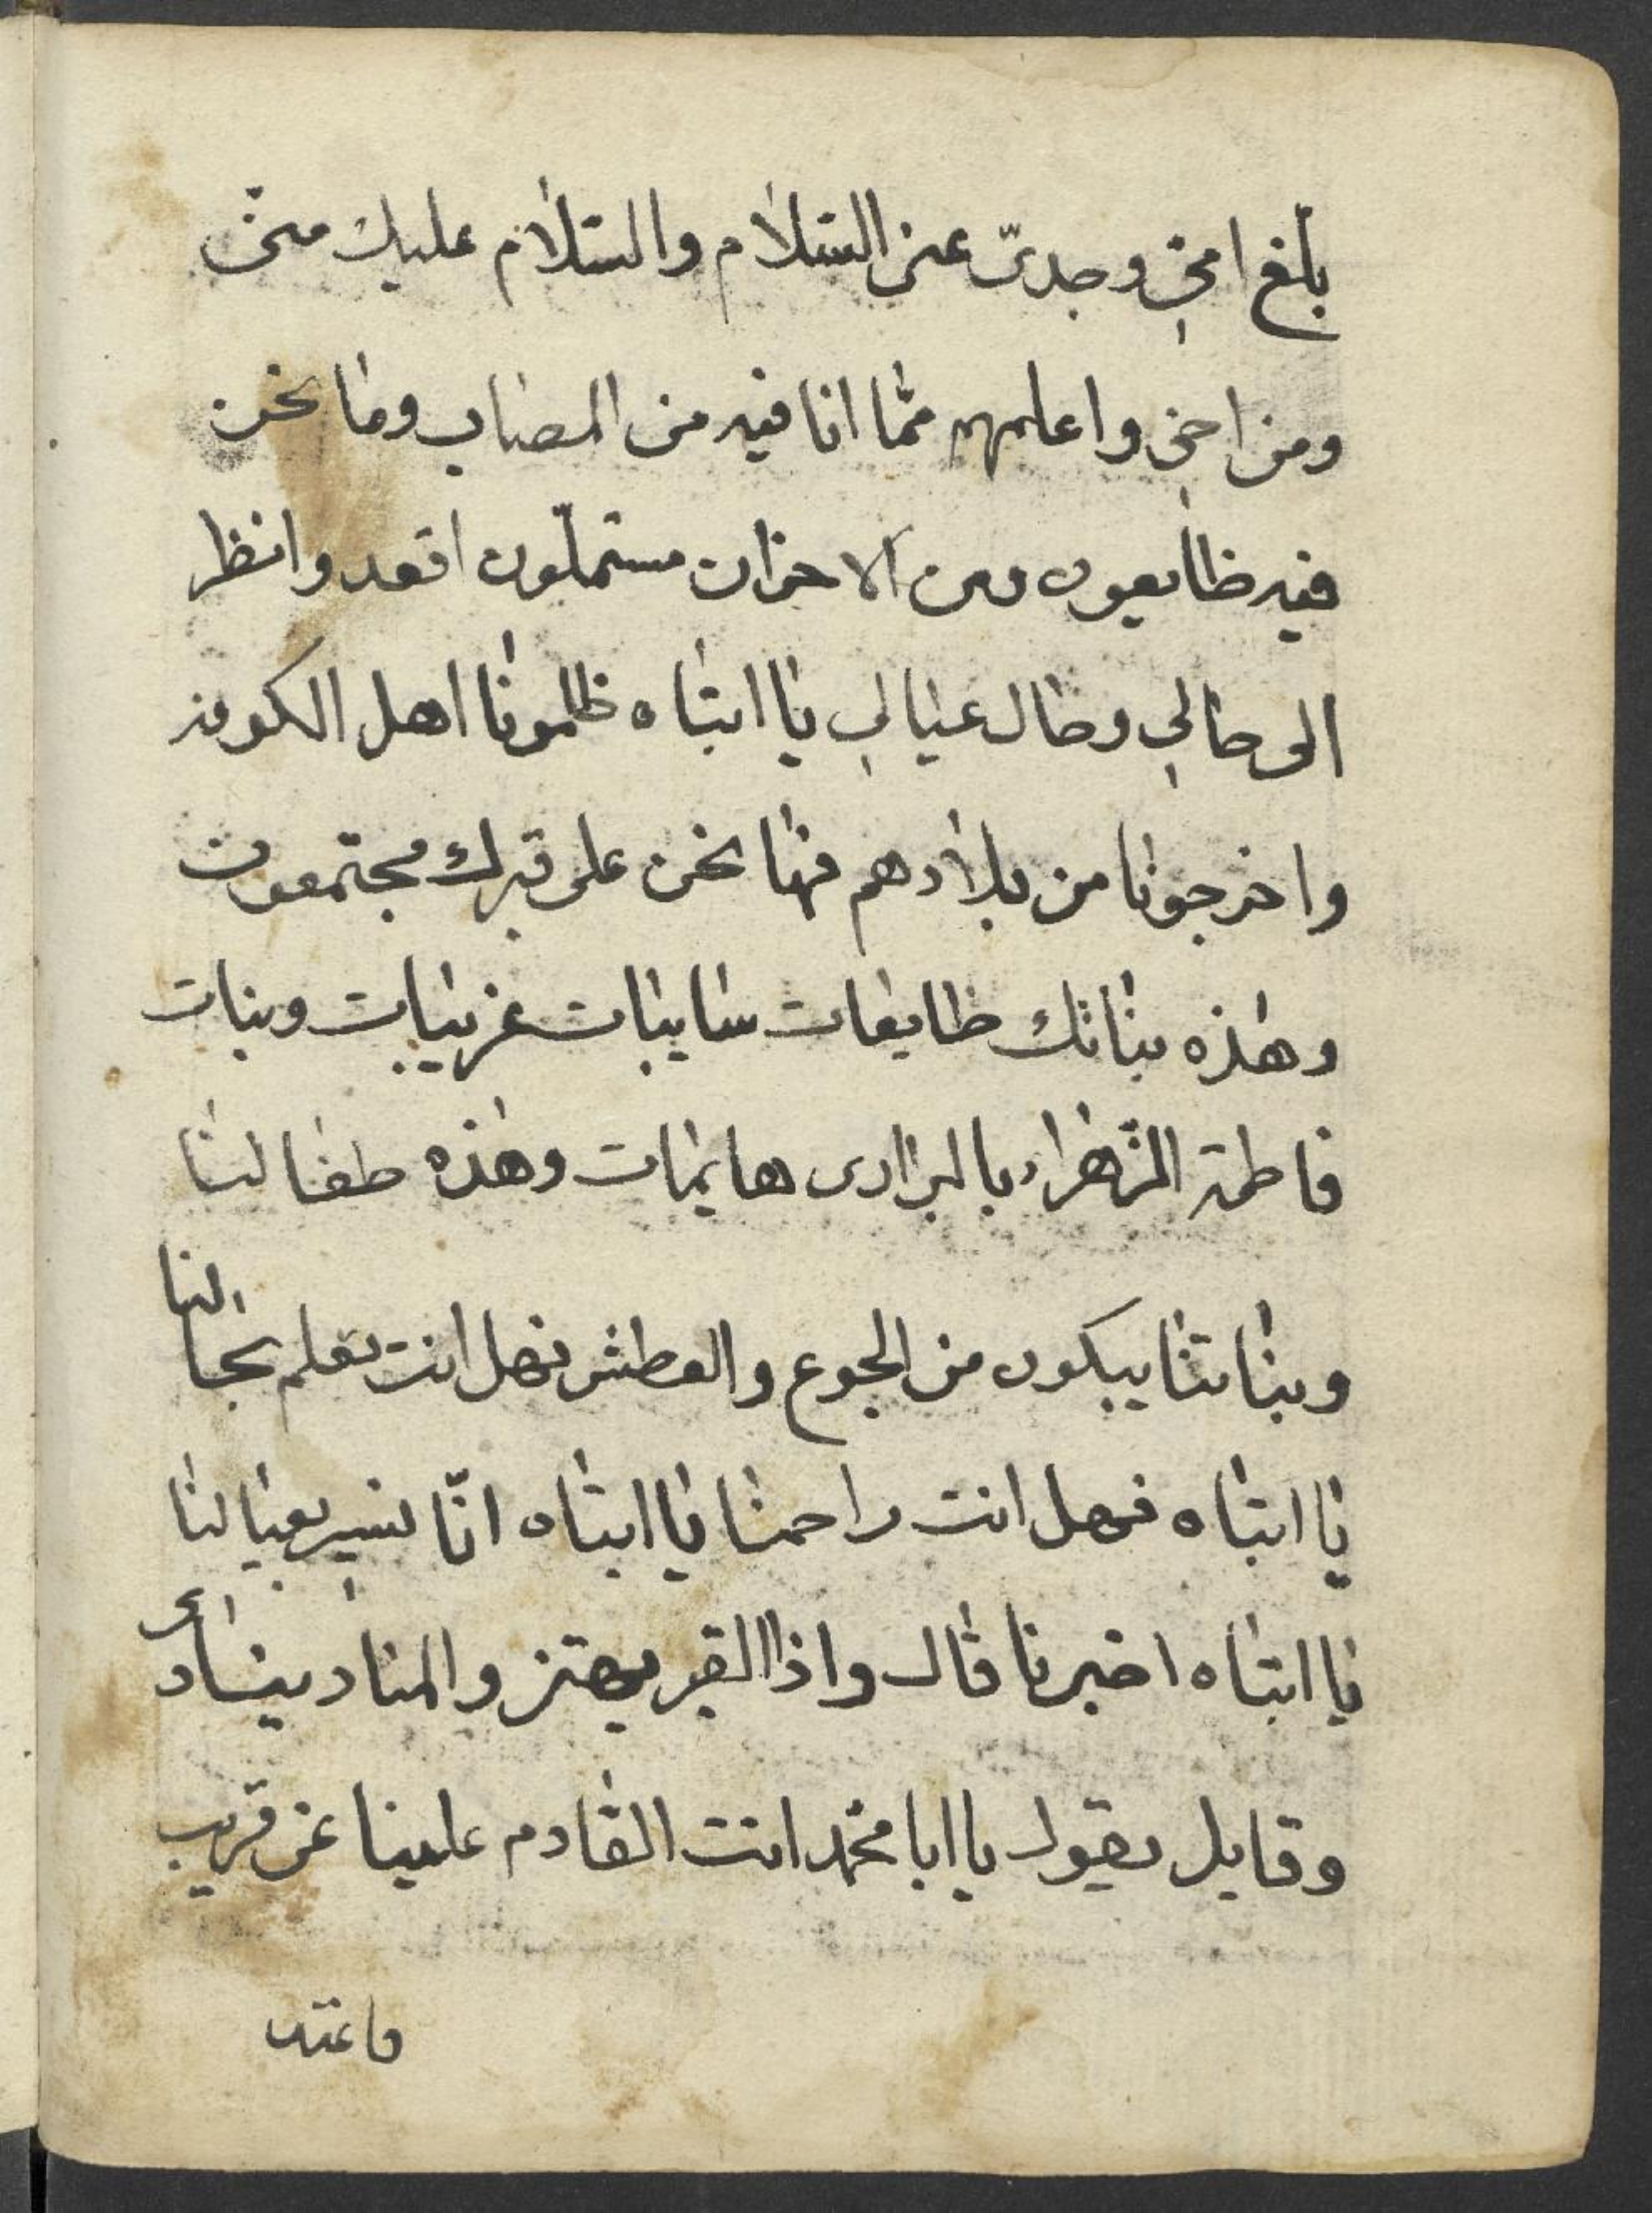 بلّغ امّي وجدّي عنّي السّلام والسّلام عليك منّي
ومن اخي واعلمهم ممّا انا فيه من المصاب وما نحن
فيه ظايعون ومن الاحزان مستملّون اقعد وانظر
الى حالي وحال عيالي يا ابتاه ظلمونا اهل الكوفه
واخرجونا من بلادهم فها نحن على قبرك مجتمعون
وهذه بناتك ظايعات سايبات غريبات وبنات
فاطمة الزّهراء بالبراري هايمات وهذه طفالنا
وبناتنا يبكون من الجوع والعطش فهل انت تعلم بحالنا
يا ابتاه فهل انت راحمنا يا ابتاه انّا نسير بعيالنا
يا ابتاه اخبرنا قال واذا القبر يهتز والمناد ينادي
وقايل يقول يا ابا محمّد انت القادم علينا عن قريب